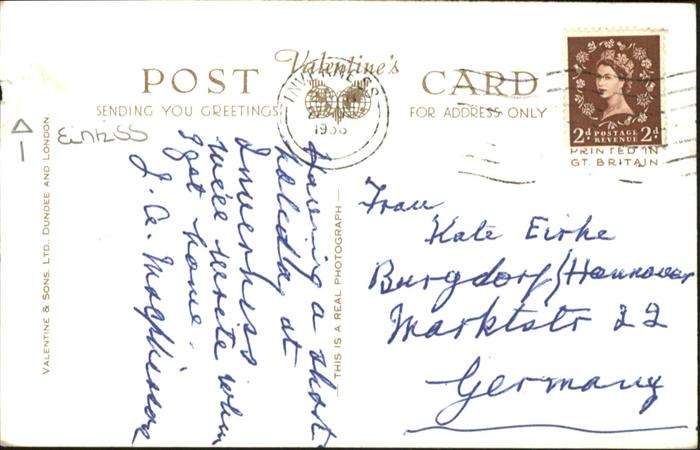 POST
Valentine's
CARD
SENDING YOU GREETINGS
FOR ADDRESS ONLY
INVERNESS
2d POSTAGE REVENUE 2d
PRINTED IN
GT. BRITAIN
VALENTINE & SONS. LTD., DUNDEE AND LONDON
THIS IS A REAL PHOTOGRAPH
Having a short
holiday at
Inverness
we'll write when
I get home.
J. A. MacPherson
Frau
Kate Eicke
Burgdorf/Hannover
Marktstr 22
Germany